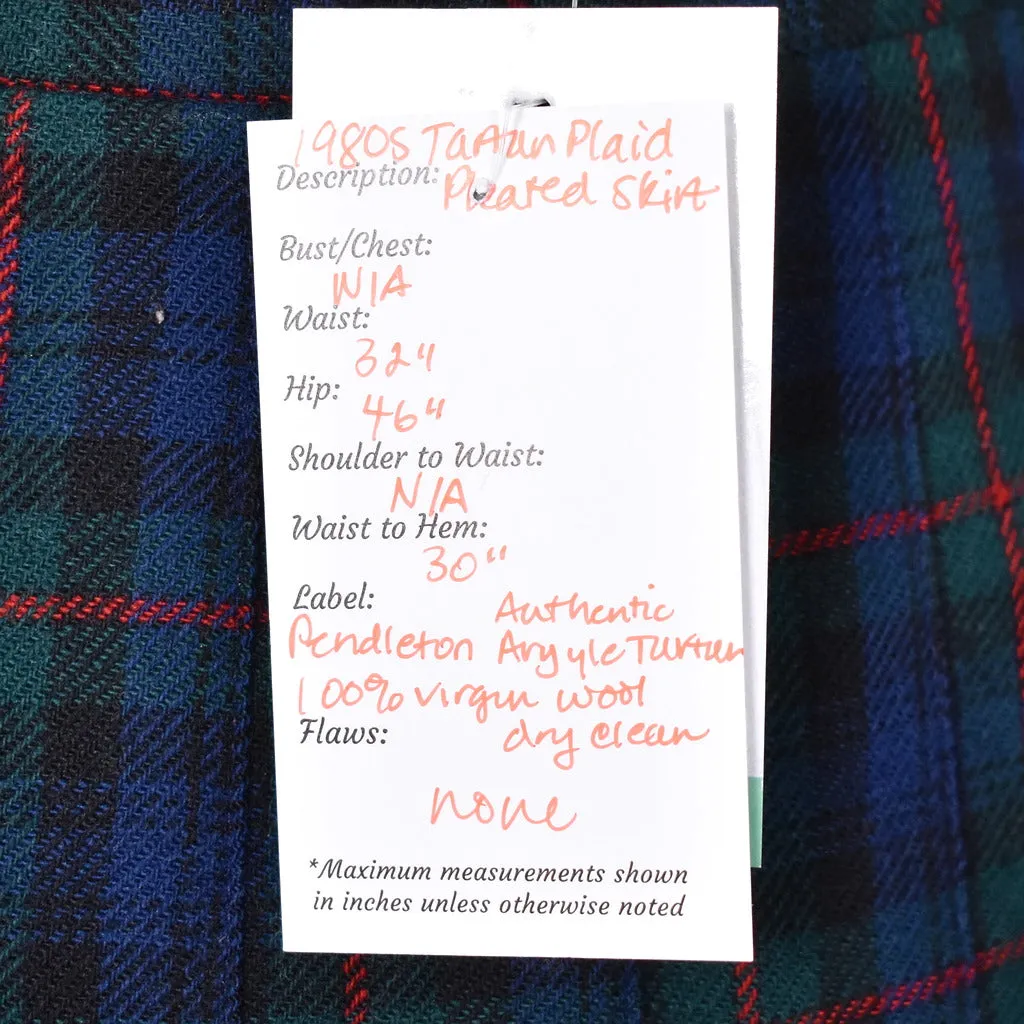 1980s Tartan Plaid
Description: Pleated Skirt
Bust/Chest:
N/A
Waist:
32"
Hip:
46"
Shoulder to Waist:
N/A
Waist to Hem:
30"
Label: Authentic
Pendleton Argyle Tartan
100% virgin wool
Flaws: dry clean
none
*Maximum measurements shown
in inches unless otherwise noted